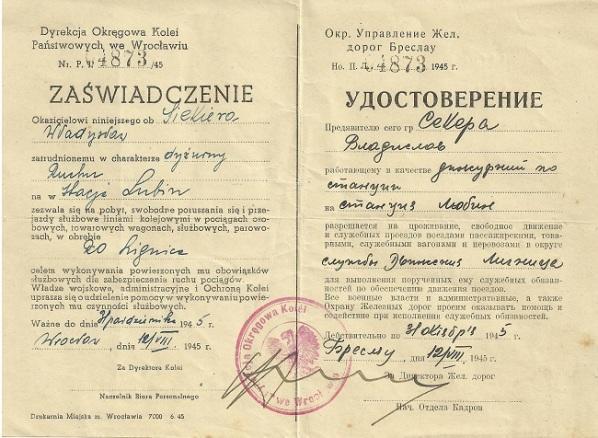 Dyrekcja Okręgowa Kolei
Państwowych we Wrocławiu
Nr. P. 4873 /45
ZAŚWIADCZENIE
Okazicielowi niniejszego ob Siekiera
Władysław
zatrudnionemu w charakterze dyżurny
Ruchu
na w Stacja Lubin
zezwala się na pobyt, swobodne poruszania się i prze-
jazdy służbowe liniami kolejowymi w pociągach oso-
bowych, towarowych wagonach, służbowych, paro-
wozach, w obrębie
RO Lignica
celem wykonywania powierzonych mu obowiązków
służbowych dla zabezpieczenia ruchu pociągów.
Władze wojskowe, administracyjne i Ochronę Kolei
uprasza się o udzielenie pomocy w wykonywaniu powie-
rzonych mu czynności służbowych.
Ważne do 31 października 1945 r.
Wrocław, dnia 12/VIII 1945 r.
Za Dyrektora Kolei
Naczelnik Biura Personalnego
Drukarnia Miejska m. Wrocławia 7000 6.45
Окр. Управление Жел.
дорог Бреслау
Но. П. 4873 1945 г.
УДОСТОВЕРЕНИЕ
Предъявителю сего гр Секера
Владислав
работающему в качестве дежурний по
станции
на станция Любин
разрешается на проживание, свободное движение
и служебных проездов поездами пассажирскими, това-
рными, служебными вагонами и паровозами в округе
службы Движения Лигница
для выполнения порученных ему служебных обязан-
ностей по обеспечению движения поездов.
Все военные власти и административные, а также
Охрану Железных дорог просим оказывать помощь и
содействие при исполнении служебных обязанностей.
Действительно по 31 октября 1945 г.
Бреслау, 12/VIII, 1945 г.
За Директора Жел. дорог
Нач. Отдела Кадров
Okręgowa Kolei
we Wrocł